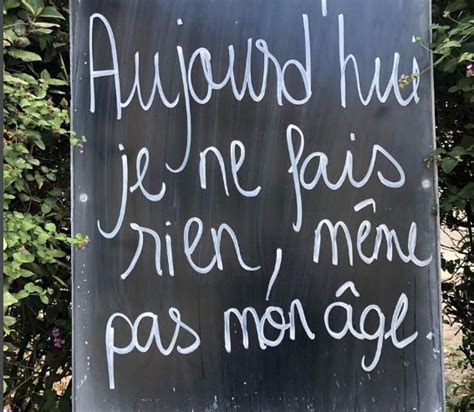 Aujourd'hui
je ne fais
rien, même
pas mon âge.